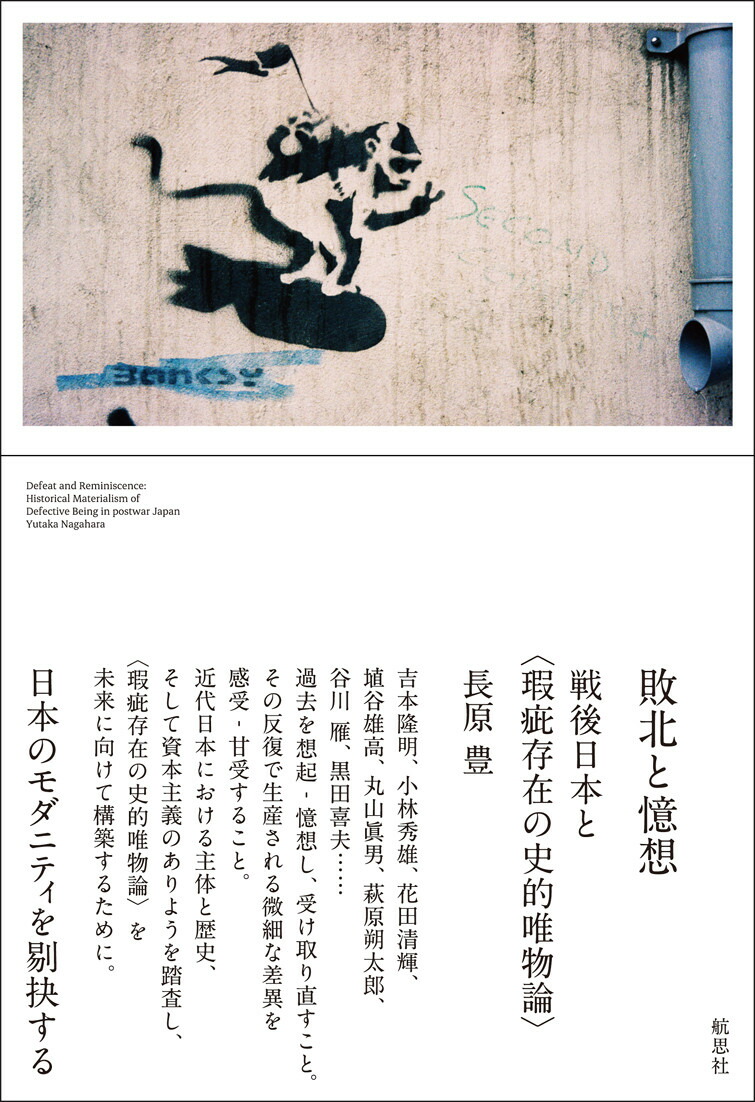 SECOND
BANKSY
Defeat and Reminiscence:
Historical Materialism of
Defective Being in postwar Japan
Yutaka Nagahara
敗北と憶想
戦後日本と
〈瑕疵存在の史的唯物論〉
長原 豊
吉本隆明、小林秀雄、花田清輝、
埴谷雄高、丸山眞男、萩原朔太郎、
谷川 雁、黒田喜夫……
過去を想起 - 憶想し、受け取り直すこと。
その反復で生産される微細な差異を
感受 - 甘受すること。
近代日本における主体と歴史、
そして資本主義のありようを踏査し、
〈瑕疵存在の史的唯物論〉を
未来に向けて構築するために。
日本のモダニティを剔抉する
航思社